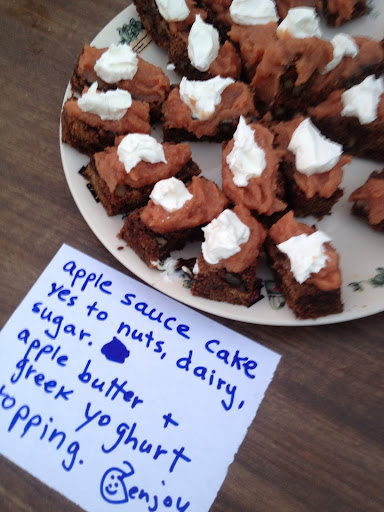 apple sauce cake
yes to nuts, dairy,
sugar.
apple butter +
greek yoghurt
topping.
enjoy